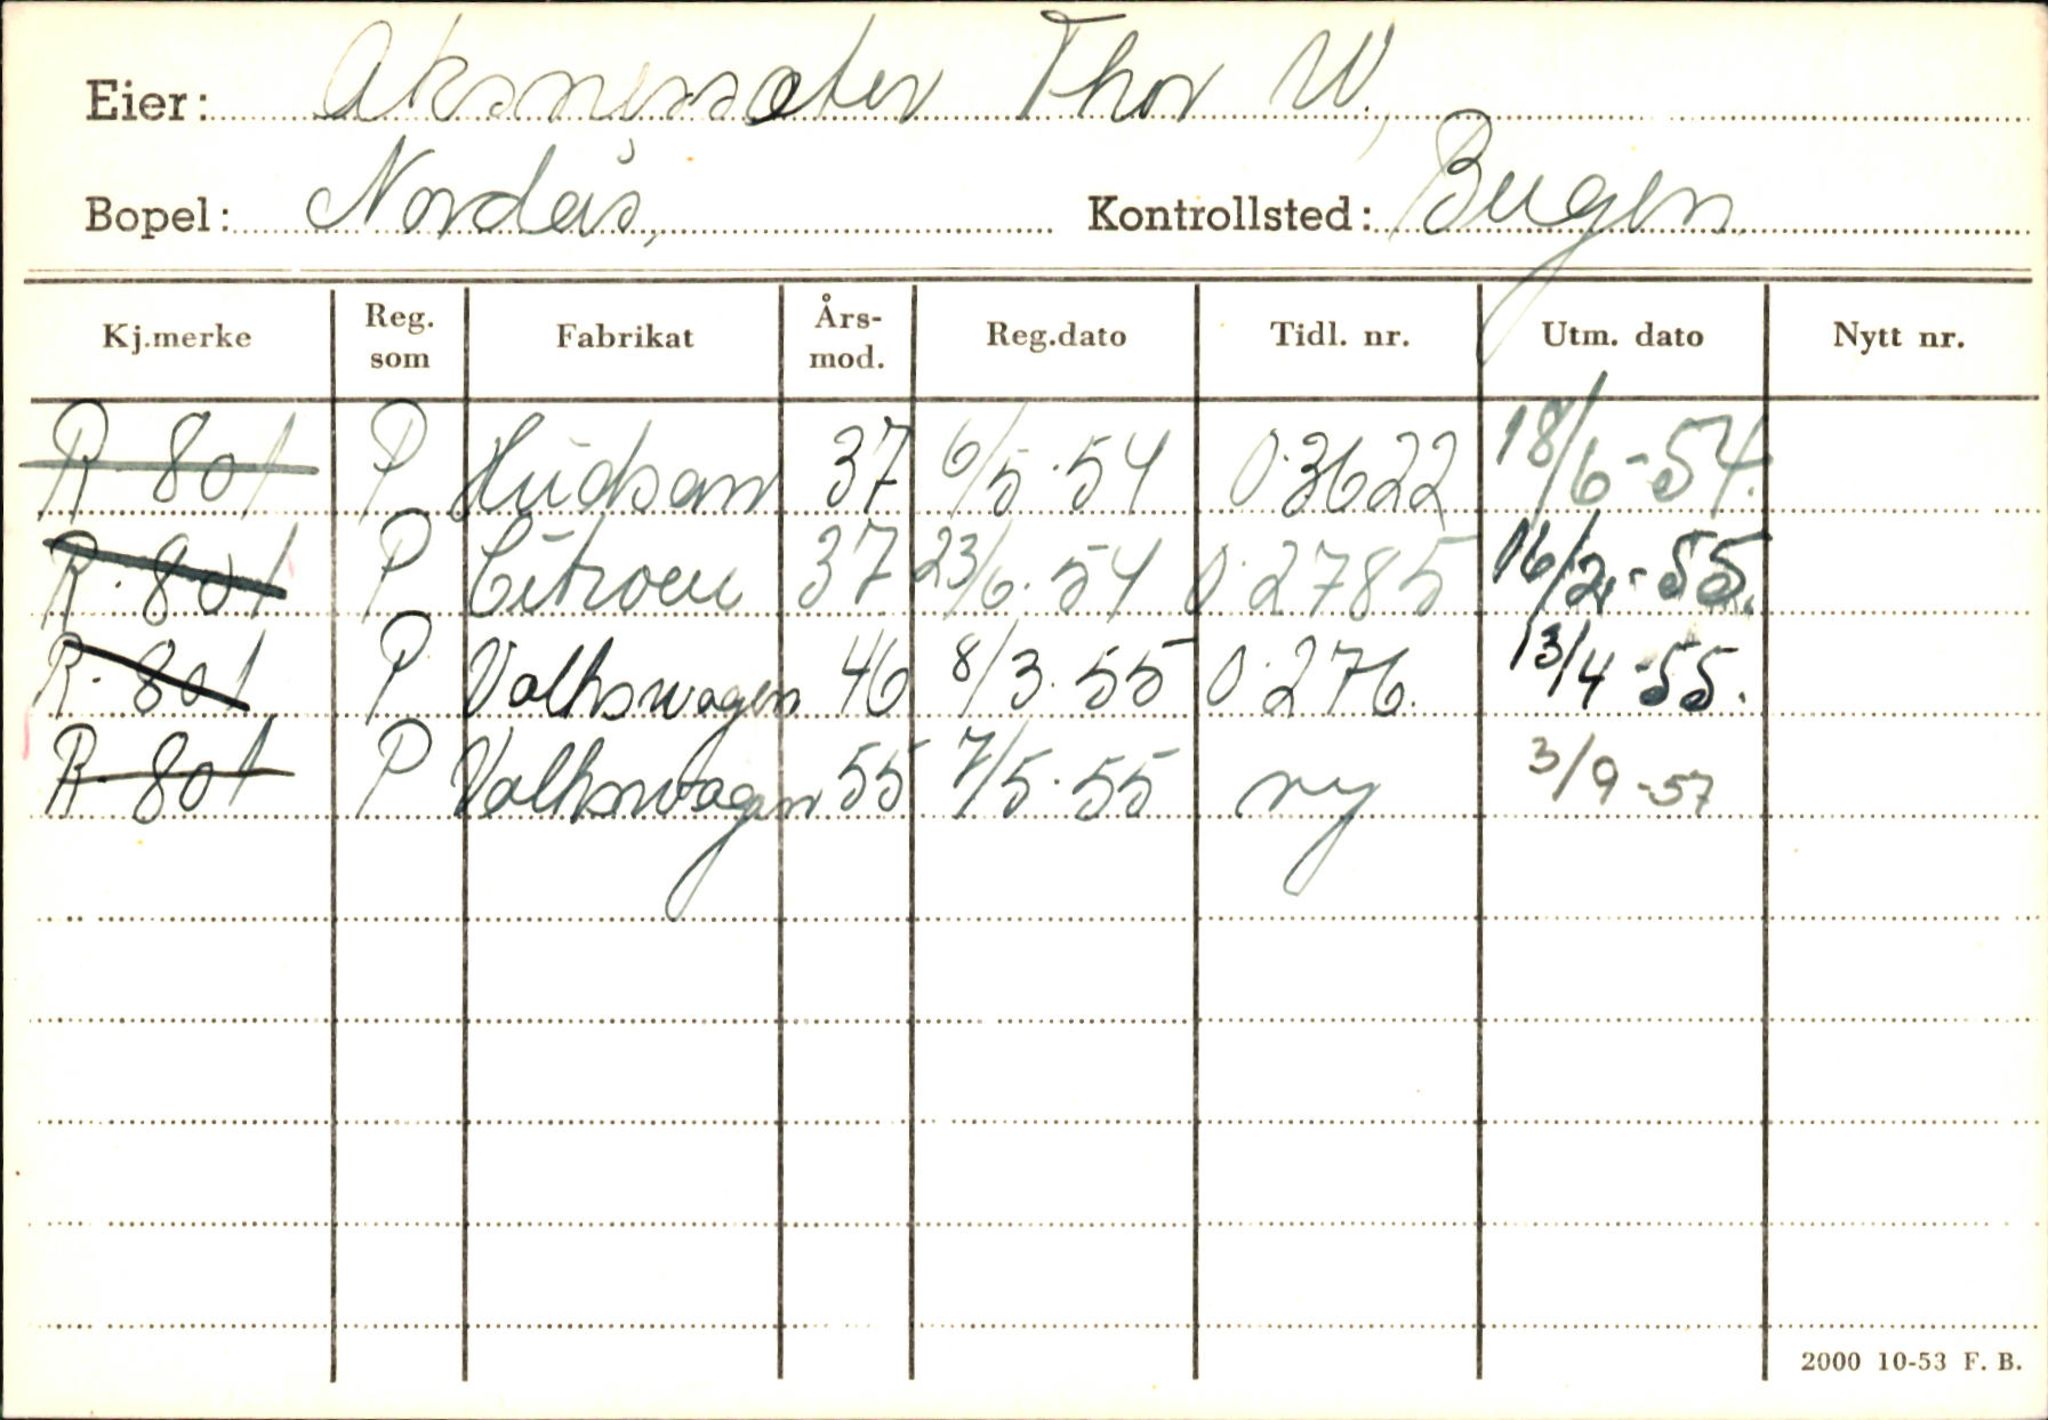 Eier: Aksnessæter Thor W.,
Bopel: Nordås, Kontrollsted: Bergen
Kj.merke Reg. som Fabrikat Års-mod. Reg.dato Tidl. nr. Utm. dato Nytt nr.
R-801 P Hudson 37 6/5-54 O-3622 18/6-54.
R-801 P Citroen 37 23/6-54 O-2785 16/2-55.
R-801 P Volkswagen 46 8/3-55 O-276. 13/4-55.
R-801 P Volkswagen 55 7/5-55 ny 3/9-57
2000 10-53 F. B.